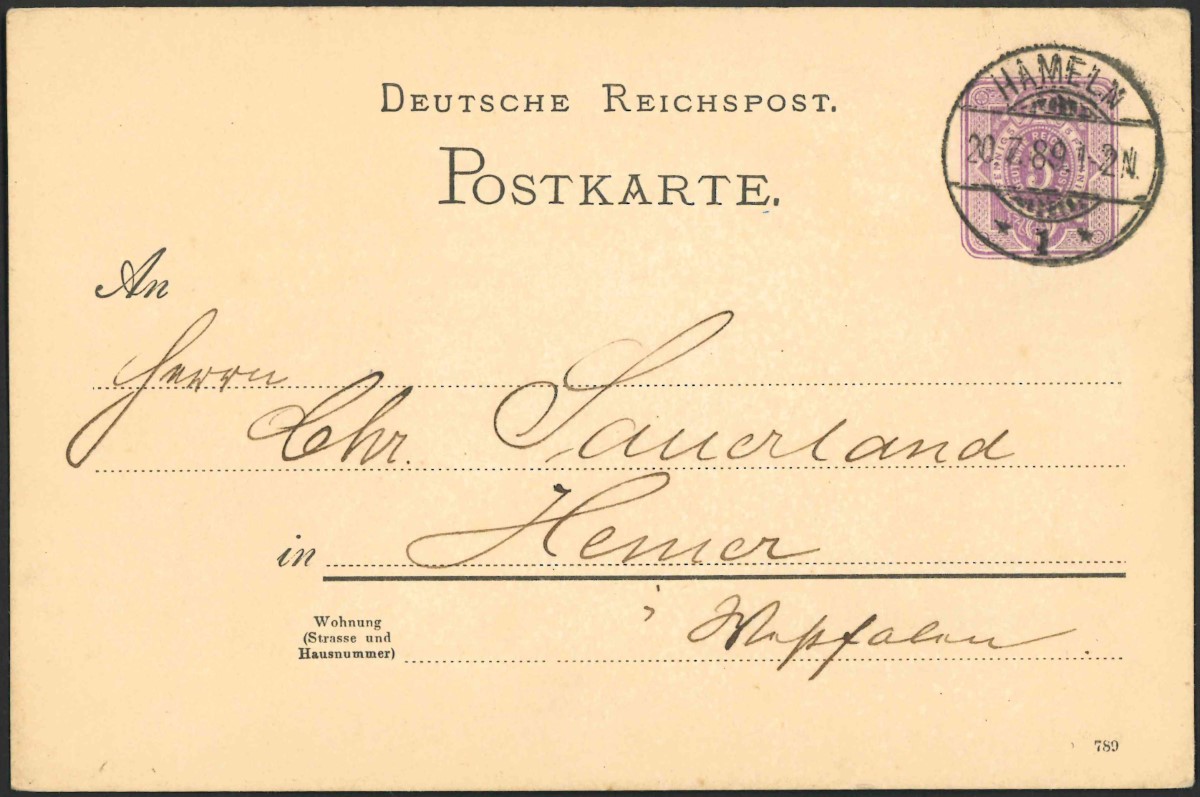 DEUTSCHE REICHSPOST.
POSTKARTE.
HAMELN
20.7.89.1-2N.
* 1 *
5
An
Herrn
Chr. Sauerland
in Hemer
i Westfalen.
Wohnung
(Strasse und
Hausnummer)
789